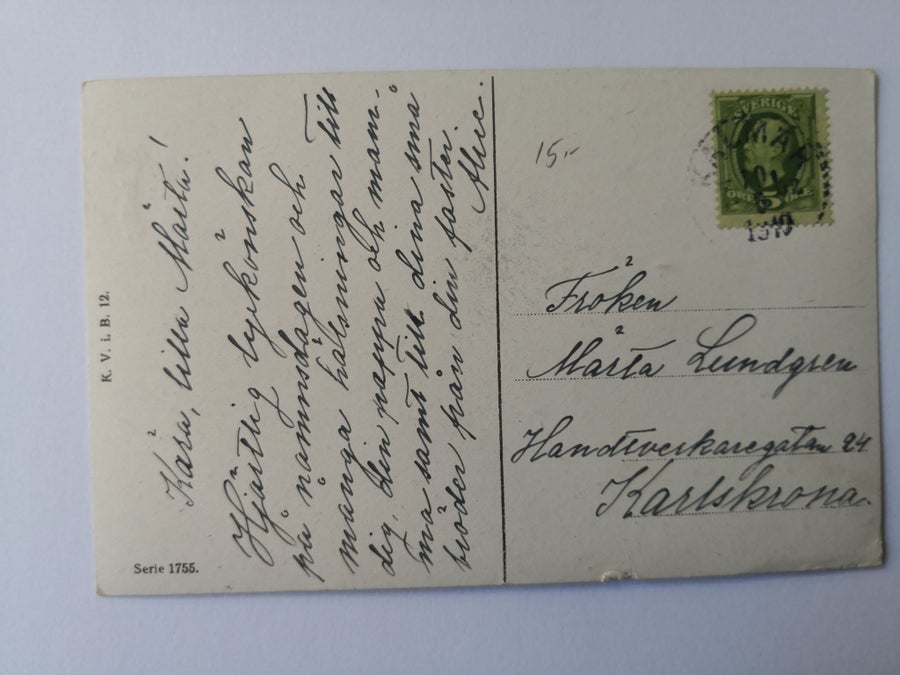 Kära, lilla Märta!
Hjärtlig lyckönskan
på namnsdagen och
många hälsningar till
dig, din pappa och mam-
ma samt till dina små
bröder från din faster
K. V. i. B. 12.
Serie 1755.
15,-
SVERIGE
5
ÖRE
KALMAR
1910
Fröken
Märta Lundgren
Handtverkaregatan 24
Karlskrona.